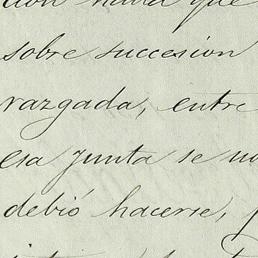 cion había que
sobre succesion
razgada, entre
esa Junta se no
debió hacerse,